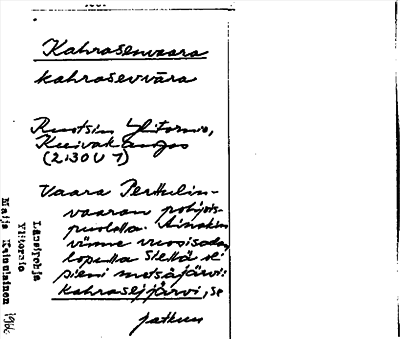 Kahrasenvaara
kahrasevvāra
Ruotsin Ylitornio,
Kuivakangas
(2130 U 7)
Vaara Perttulin-
vaaran pohjois-
puolella. Ainakin
viime vuosisadan
lopulla siellä oli
pieni metsäjärvi:
Kahrasejjärvi, se
jatkuu
Länsipohja
Ylitornio
Maija Kainulainen
1966